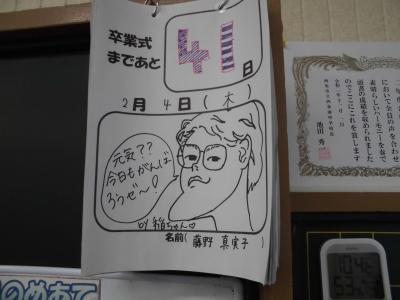 卒業式
まであと
41
日
2月 4日(木)
元気??
今日もがんば
ろうぜ〜♡
by 稲ちゃん♡
名前( 藤野 真実子 )
において全員の声を合わせ
素晴らしいハーモニーを奏で
頭書の成績を収められました
のでここにこれを賞します
池田 秀
のめあて